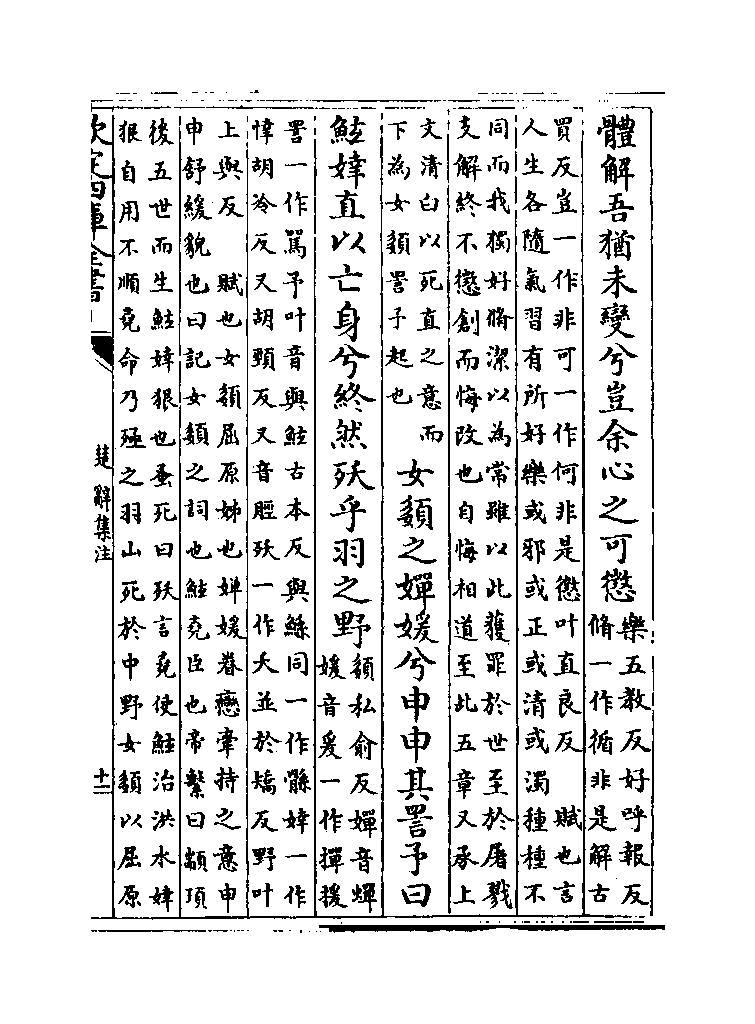 體解吾猶未變兮豈余心之可懲樂五教反好呼報反
脩一作循非是解古
買反豈一作非可一作何非是懲叶直良反　賦也言
人生各隨氣習有所好樂或邪或正或清或濁種種不
同而我獨好脩潔以為常雖以此獲罪於世至於屠戮
支解終不懲創而悔改也自悔相道至此五章又承上
文清白以死直之意而
下為女顡詈予起也
女顡之嬋媛兮申申其詈予曰
鮌婞直以亡身兮終然殀乎羽之野顡私俞反嬋音蟬
媛音爰一作撣援
詈一作罵予叶音與鮌古本反與鯀同一作骸婞一作
悻胡冷反又胡頸反又音脛殀一作夭並於矯反野叶
上與反　賦也女顡屈原姊也嬋媛眷戀牽持之意申
申舒緩貌也曰記女顡之詞也鮌堯臣也帝繫曰顓頊
後五世而生鮌婞狠也蚤死曰殀言堯使鮌治洪水婞
狠自用不順堯命乃殛之羽山死於中野女顡以屈原
欽定四庫全書
楚辭集注
十二